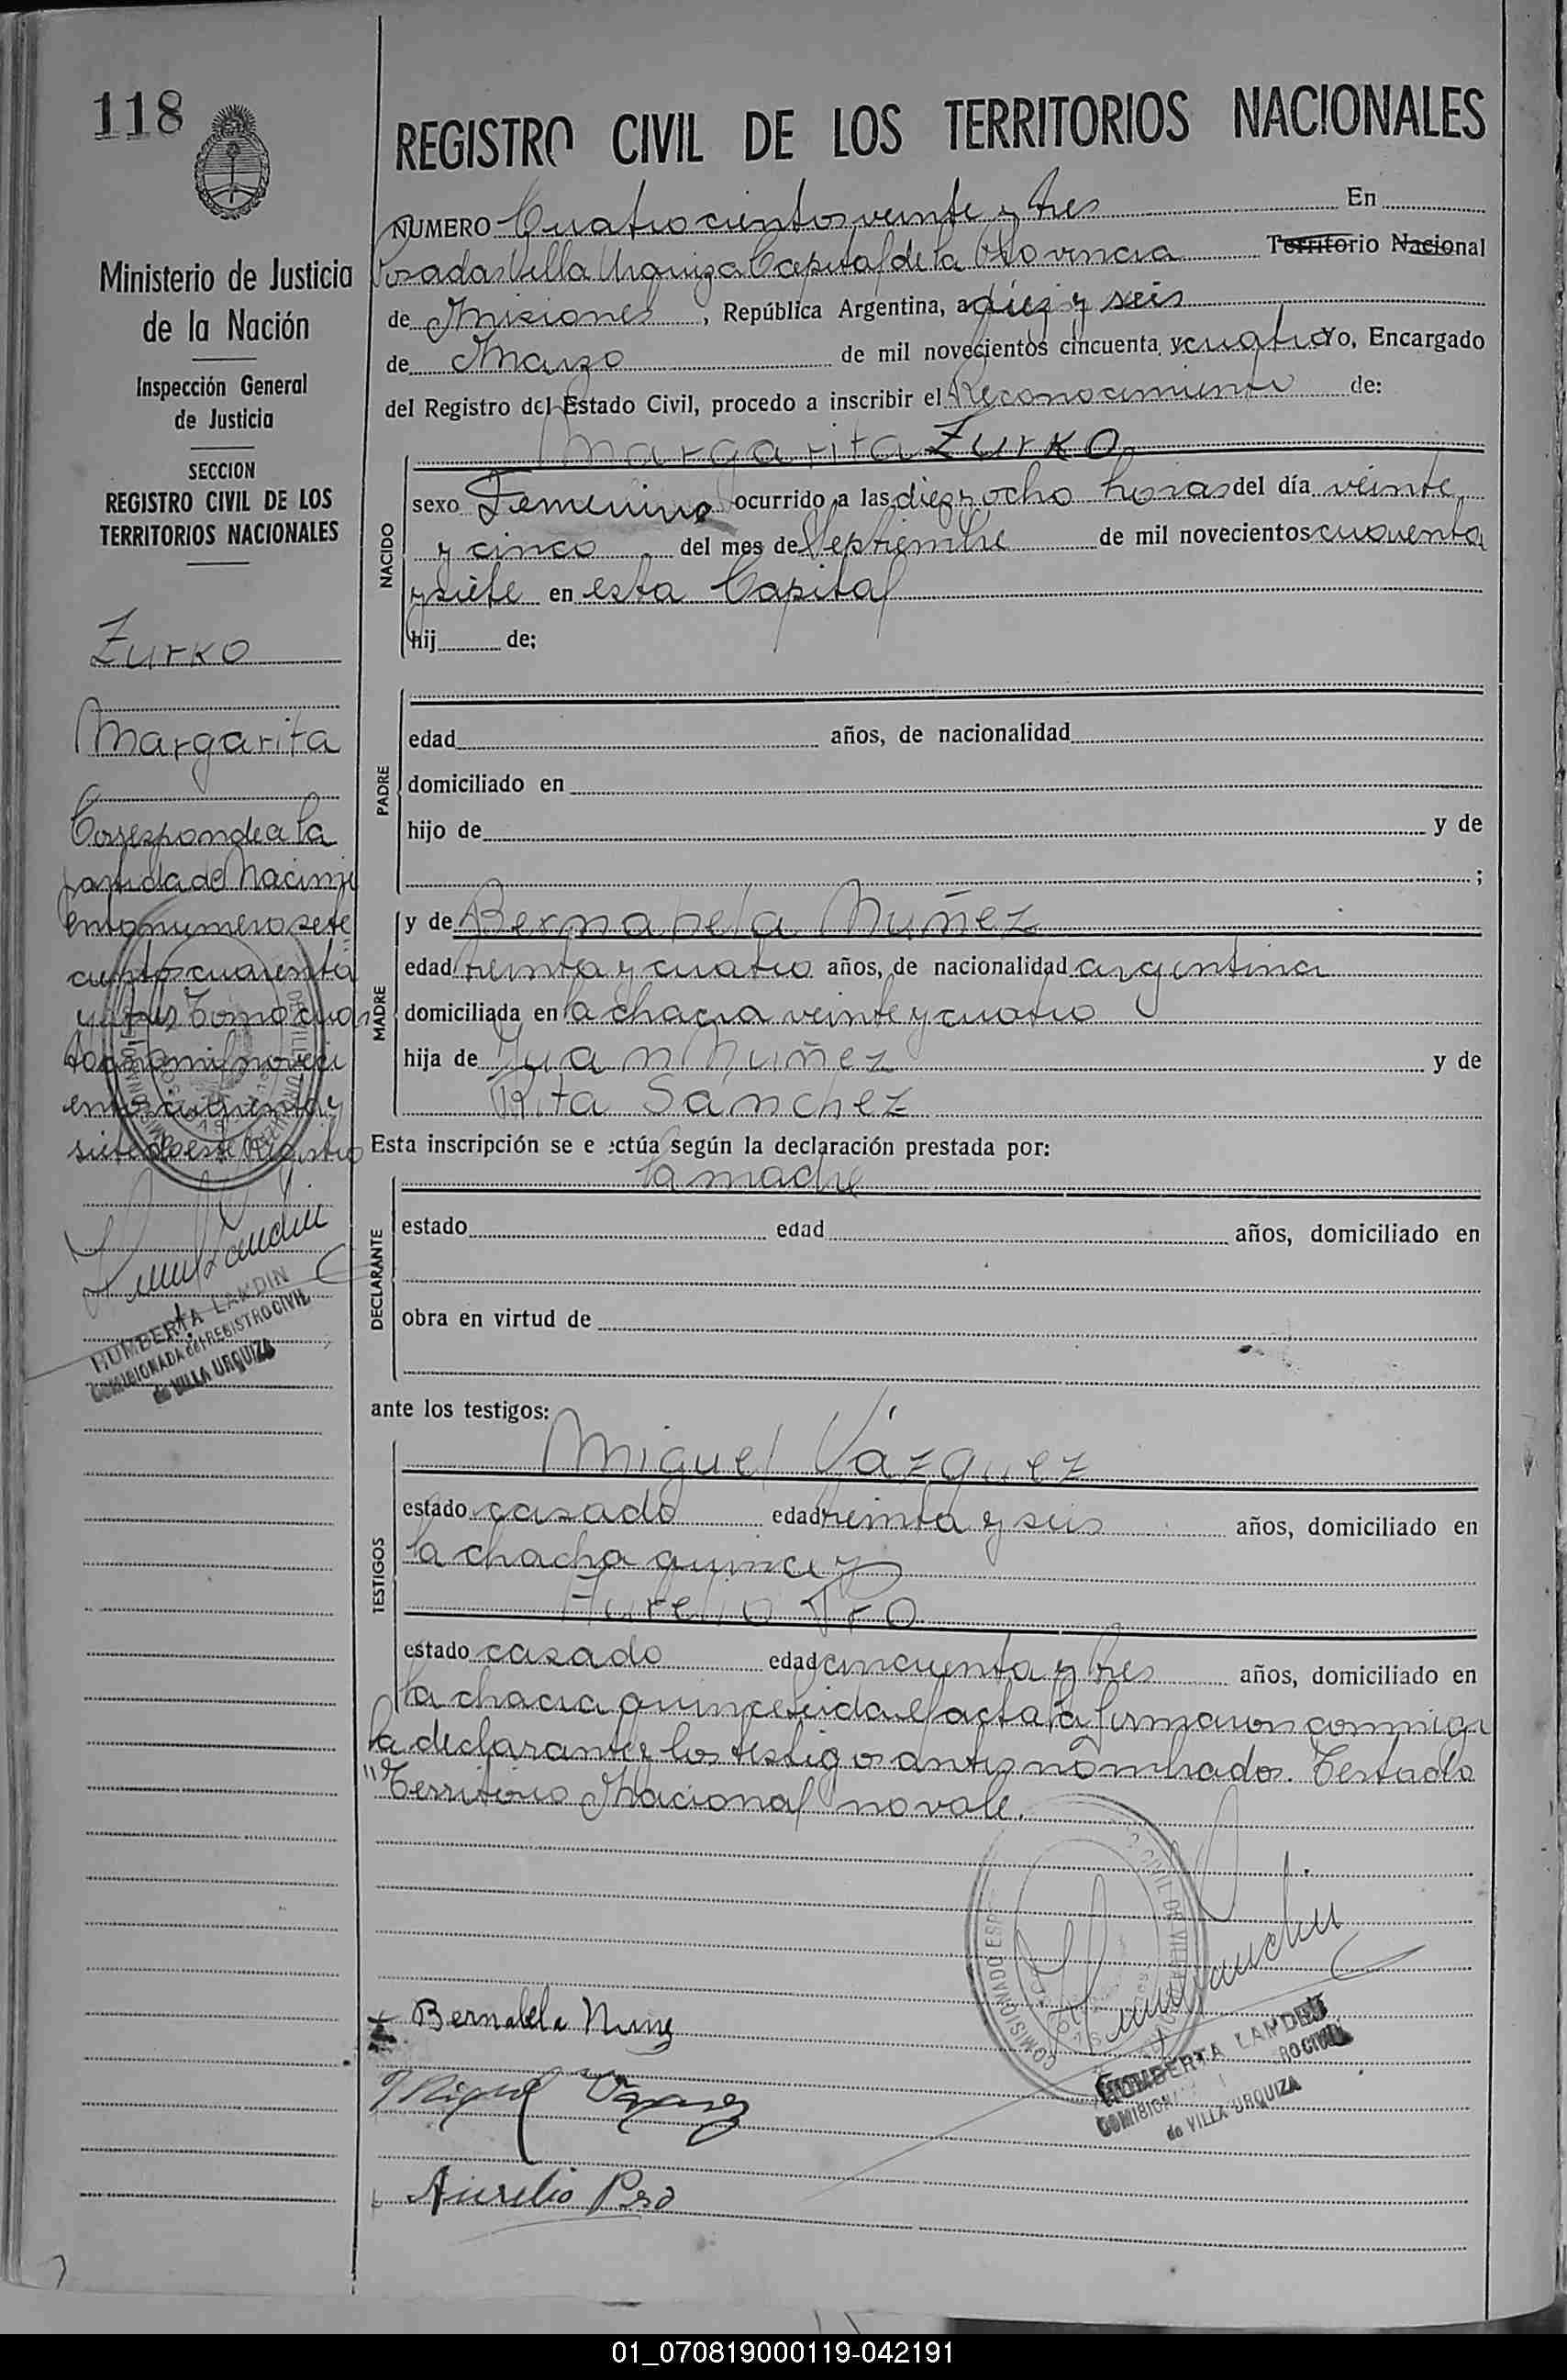 118
REGISTRO CIVIL DE LOS TERRITORIOS NACIONALES
Ministerio de Justicia
de la Nación
Inspección General
de Justicia
SECCION
REGISTRO CIVIL DE LOS
TERRITORIOS NACIONALES
Zurko
Margarita
Corresponde a la
partida de Nacimi
ento numero sete
ciento cuarenta
y tres Tomo cua
tro año mil noveci
entos cuarenta y
siete de este Registro
HUMBERTA LANDIN
COMISIONADA del REGISTRO CIVIL
de VILLA URQUIZA
NUMERO Cuatrocientos veinte y tres En
Posadas Villa Urquiza Capital de la Provincia Territorio Nacional
de Misiones, República Argentina, a diez y seis
de Marzo de mil novecientos cincuenta y cuatro Yo, Encargado
del Registro del Estado Civil, procedo a inscribir el Reconocimiento de:
Margarita Zurko
NACIDO
sexo Femenino ocurrido a las diez y ocho horas del día veinte
y cinco del mes de Septiembre de mil novecientos cuarenta
y siete en esta Capital
hij de;
PADRE
edad años, de nacionalidad
domiciliado en
hijo de y de
;
MADRE
y de Bernabela Nuñez
edad treinta y cuatro años, de nacionalidad argentina
domiciliada en la chacra veinte y cuatro
hija de Juan Nuñez y de
Rita Sánchez
Esta inscripción se e ectúa según la declaración prestada por:
la madre
DECLARANTE
estado edad años, domiciliado en
obra en virtud de
ante los testigos:
TESTIGOS
Miguel Vázquez
estado casado edad treinta y seis años, domiciliado en
la chacha quince y
Aurelio Pro
estado casado edad cincuenta y tres años, domiciliado en
la chacra quince leida el acta la firmaron conmigo
la declarante y los testigos antes nombrados. Testado
"Territorio Nacional no vale.
Bernabela Nunez
Miguel Vazquez
Aurelio Pro
HUMBERTA LANDIN
COMISION RO CIVIL
de VILLA URQUIZA
01_070819000119-042191